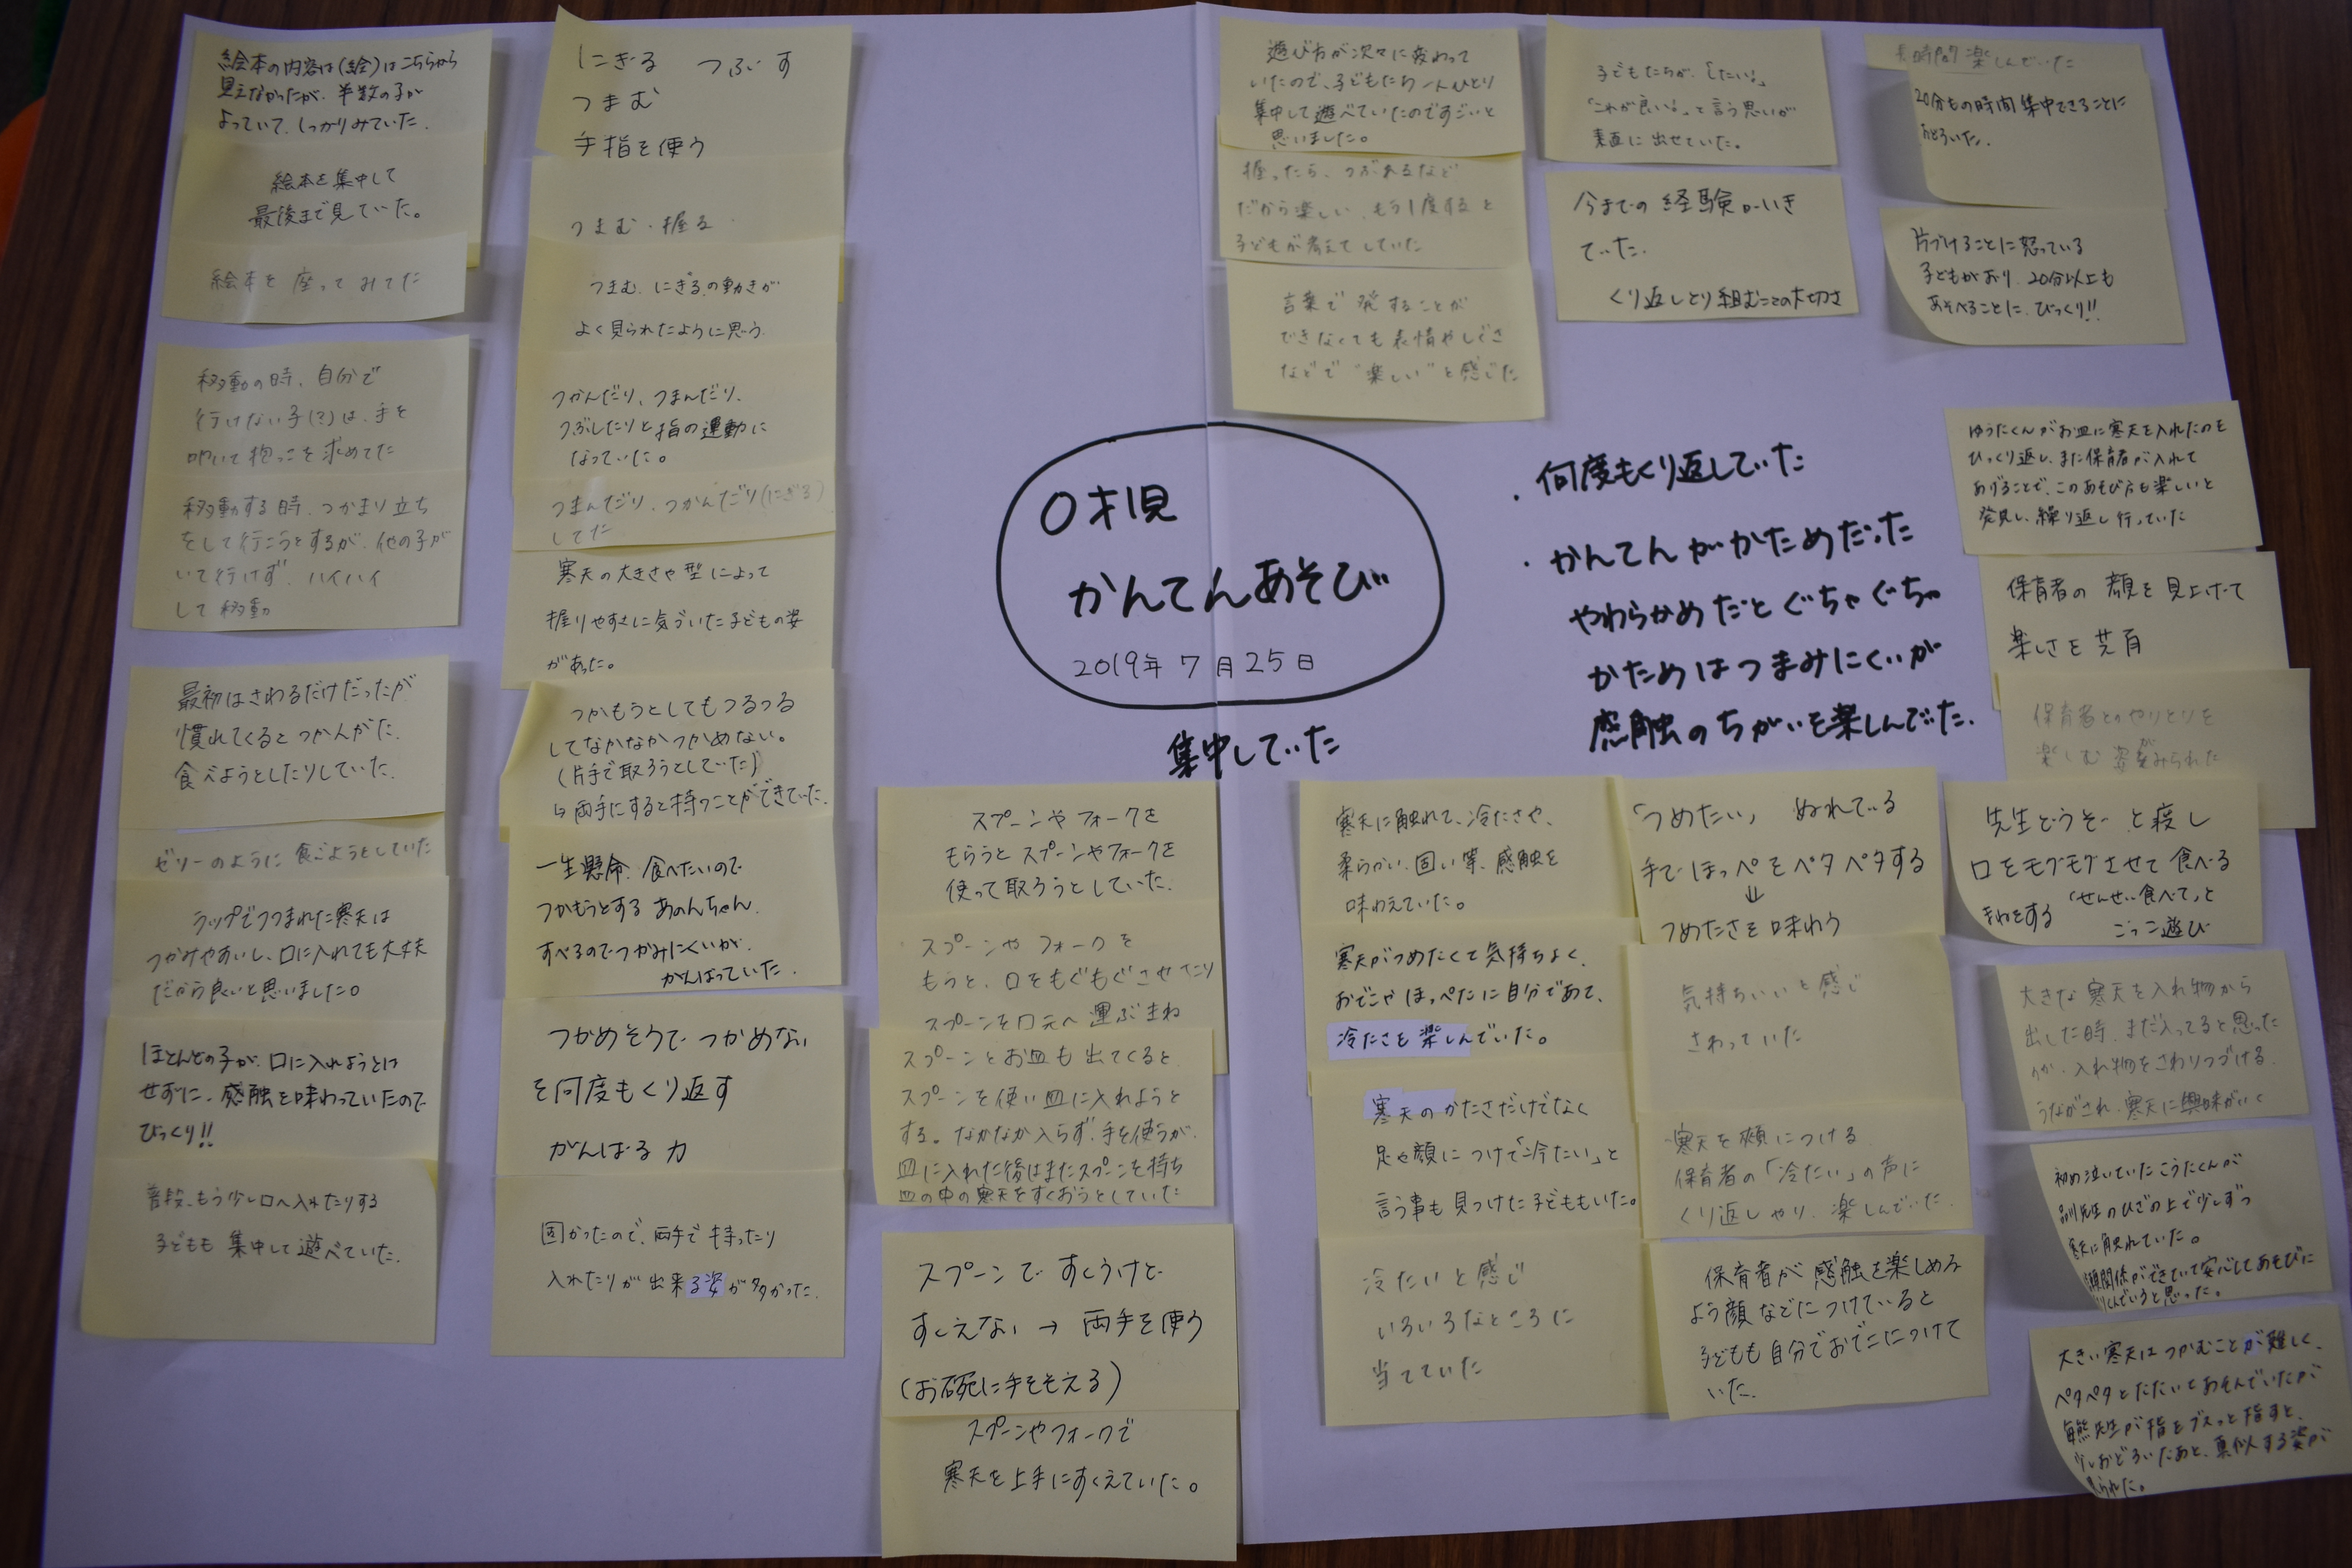 絵本の内容は(絵)はこちらから
見えなかったが、半数の子が
よっていて、しっかりみていた。
絵本を集中して
最後まで見ていた。
絵本を 座って みてた
移動の時、自分で
行けない子(?)は、手を
叩いて抱っこを求めてた
移動する時、つかまり立ち
をして行こうとするが、他の子が
いて行けず、ハイハイ
して移動
最初はさわるだけだったが
慣れてくるとつかんがた。
食べようとしたりしていた。
ゼリーのように食べようとしていた
ラップでつつまれた寒天は
つかみやすいし、口に入れても大丈夫
だから良いと思いました。
ほとんどの子が、口に入れようとは
せずに、感触を味わっていたので
びっくり!!
普段、もう少し口へ入れたりする
子どもも 集中して遊べていた。
にぎる つぶす
つまむ
手指を使う
つまむ・握る
つまむ、にぎるの動きが
よく見られたように思う。
つかんだり、つまんだり、
つぶしたりと指の運動に
なっていた。
つまんだり、つかんだり(にぎる)
してた
寒天の大きさや型によって
握りやすさに気づいた子どもの姿
があった。
つかもうとしてもつるつる
してなかなかつかめない。
(片手で取ろうとしていた)
↳両手にすると持つことができていた。
一生懸命、食べたいので
つかもうとする あのんちゃん。
すべるのでつかみにくいが、
がんばっていた。
つかめそうで つかめない
を何度もくり返す
がんばる力
固かったので、両手で持ったり
入れたりが出来る姿が多かった。
0才児
かんてんあそび
2019年7月25日
集中していた
スプーンやフォークを
もらうとスプーンやフォークを
使って取ろうとしていた。
スプーンや フォークを
もうと、口をもぐもぐさせたり
スプーンを口元へ運ぶまね
スプーンとお皿も出てくると
スプーンを使い皿に入れようと
する。なかなか入らず、手を使うが、
皿に入れた後はまたスプーンを持ち
皿の中の寒天をすくおうとしていた
スプーンで すくうけど
すくえない → 両手を使う
(お碗に手をそえる)
スプーンやフォークで
寒天を上手にすくえていた。
遊び方が次々に変わって
いたので、子どもたち一人ひとり
集中して遊べていたのですごいと
思いました。
握ったら、つぶれるなど
だから楽しい、もう1度すると
子どもが考えてしていた
言葉で発することが
できなくても表情やしぐさ
などで“楽しい”と感じた
子どもたちが、「したい!」
「これが良い!」と言う思いが
素直に出せていた。
今までの経験がいき
ていた。
くり返しとり組むことの大切さ
長時間楽しんでいた
20分もの時間集中できることに
おどろいた。
片づけることに怒っている
子どもがおり、20分以上も
あそべることに、びっくり!!
・何度もくり返していた
・かんてんがかためだった
やわらかめだとぐちゃぐちゃ
かためはつまみにくいが
感触のちがいを楽しんでいた。
ゆうたくんがお皿に寒天を入れたのを
ひっくり返し、また保育者が入れて
あげることで、このあそび方も楽しいと
発見し、繰り返し行っていた
保育者の顔を見上げて
楽しさを共有
保育者とのやりとりを
楽しむ姿がみられた
寒天に触れて、冷たさや、
柔らかい、固い等、感触を
味わえていた。
寒天がつめたくて気持ちよく、
おでこや ほっぺたに自分であて、
冷たさを楽しんでいた。
寒天のかたさだけでなく
足や顔につけて「冷たい」と
言う事も見つけた子どももいた。
冷たいと感じ
いろいろなところに
当てていた
「つめたい」 ぬれている
手で ほっぺ をペタペタする
↓
つめたさを味わう
気持ちいいと感じ
さわっていた
寒天を頬につける
保育者の「冷たい」の声に
くり返しやり、楽しんでいた。
保育者が感触を楽しめる
よう顔などにつけていると
子どもも自分でおでこにつけて
いた。
先生どうぞーと渡し
口をモグモグさせて食べる
まねをする 「せんせい食べて」と
ごっこ遊び
大きな寒天を入れ物から
出した時、まだ入ってると思った
のか、入れ物をさわりつづける。
うながされ、寒天に興味がいく
初め泣いていたこうたくんが
先生のひざの上で少しずつ
寒天に触れていた。
関係ができていて安心してあそびに
いると思った。
大きい寒天はつかむことが難しく、
ペタペタとたたいてあそんでいたが
先生が指をブスっと指すと、
少しおどろいたあと、真似する姿が
見られた。